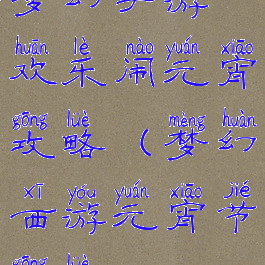 huān lè nào yuán xiāo
欢乐闹元宵
gōng lüè mèng huàn
攻略（梦幻
xī yóu yuán xiāo jié
西游元宵节
gōng lüè